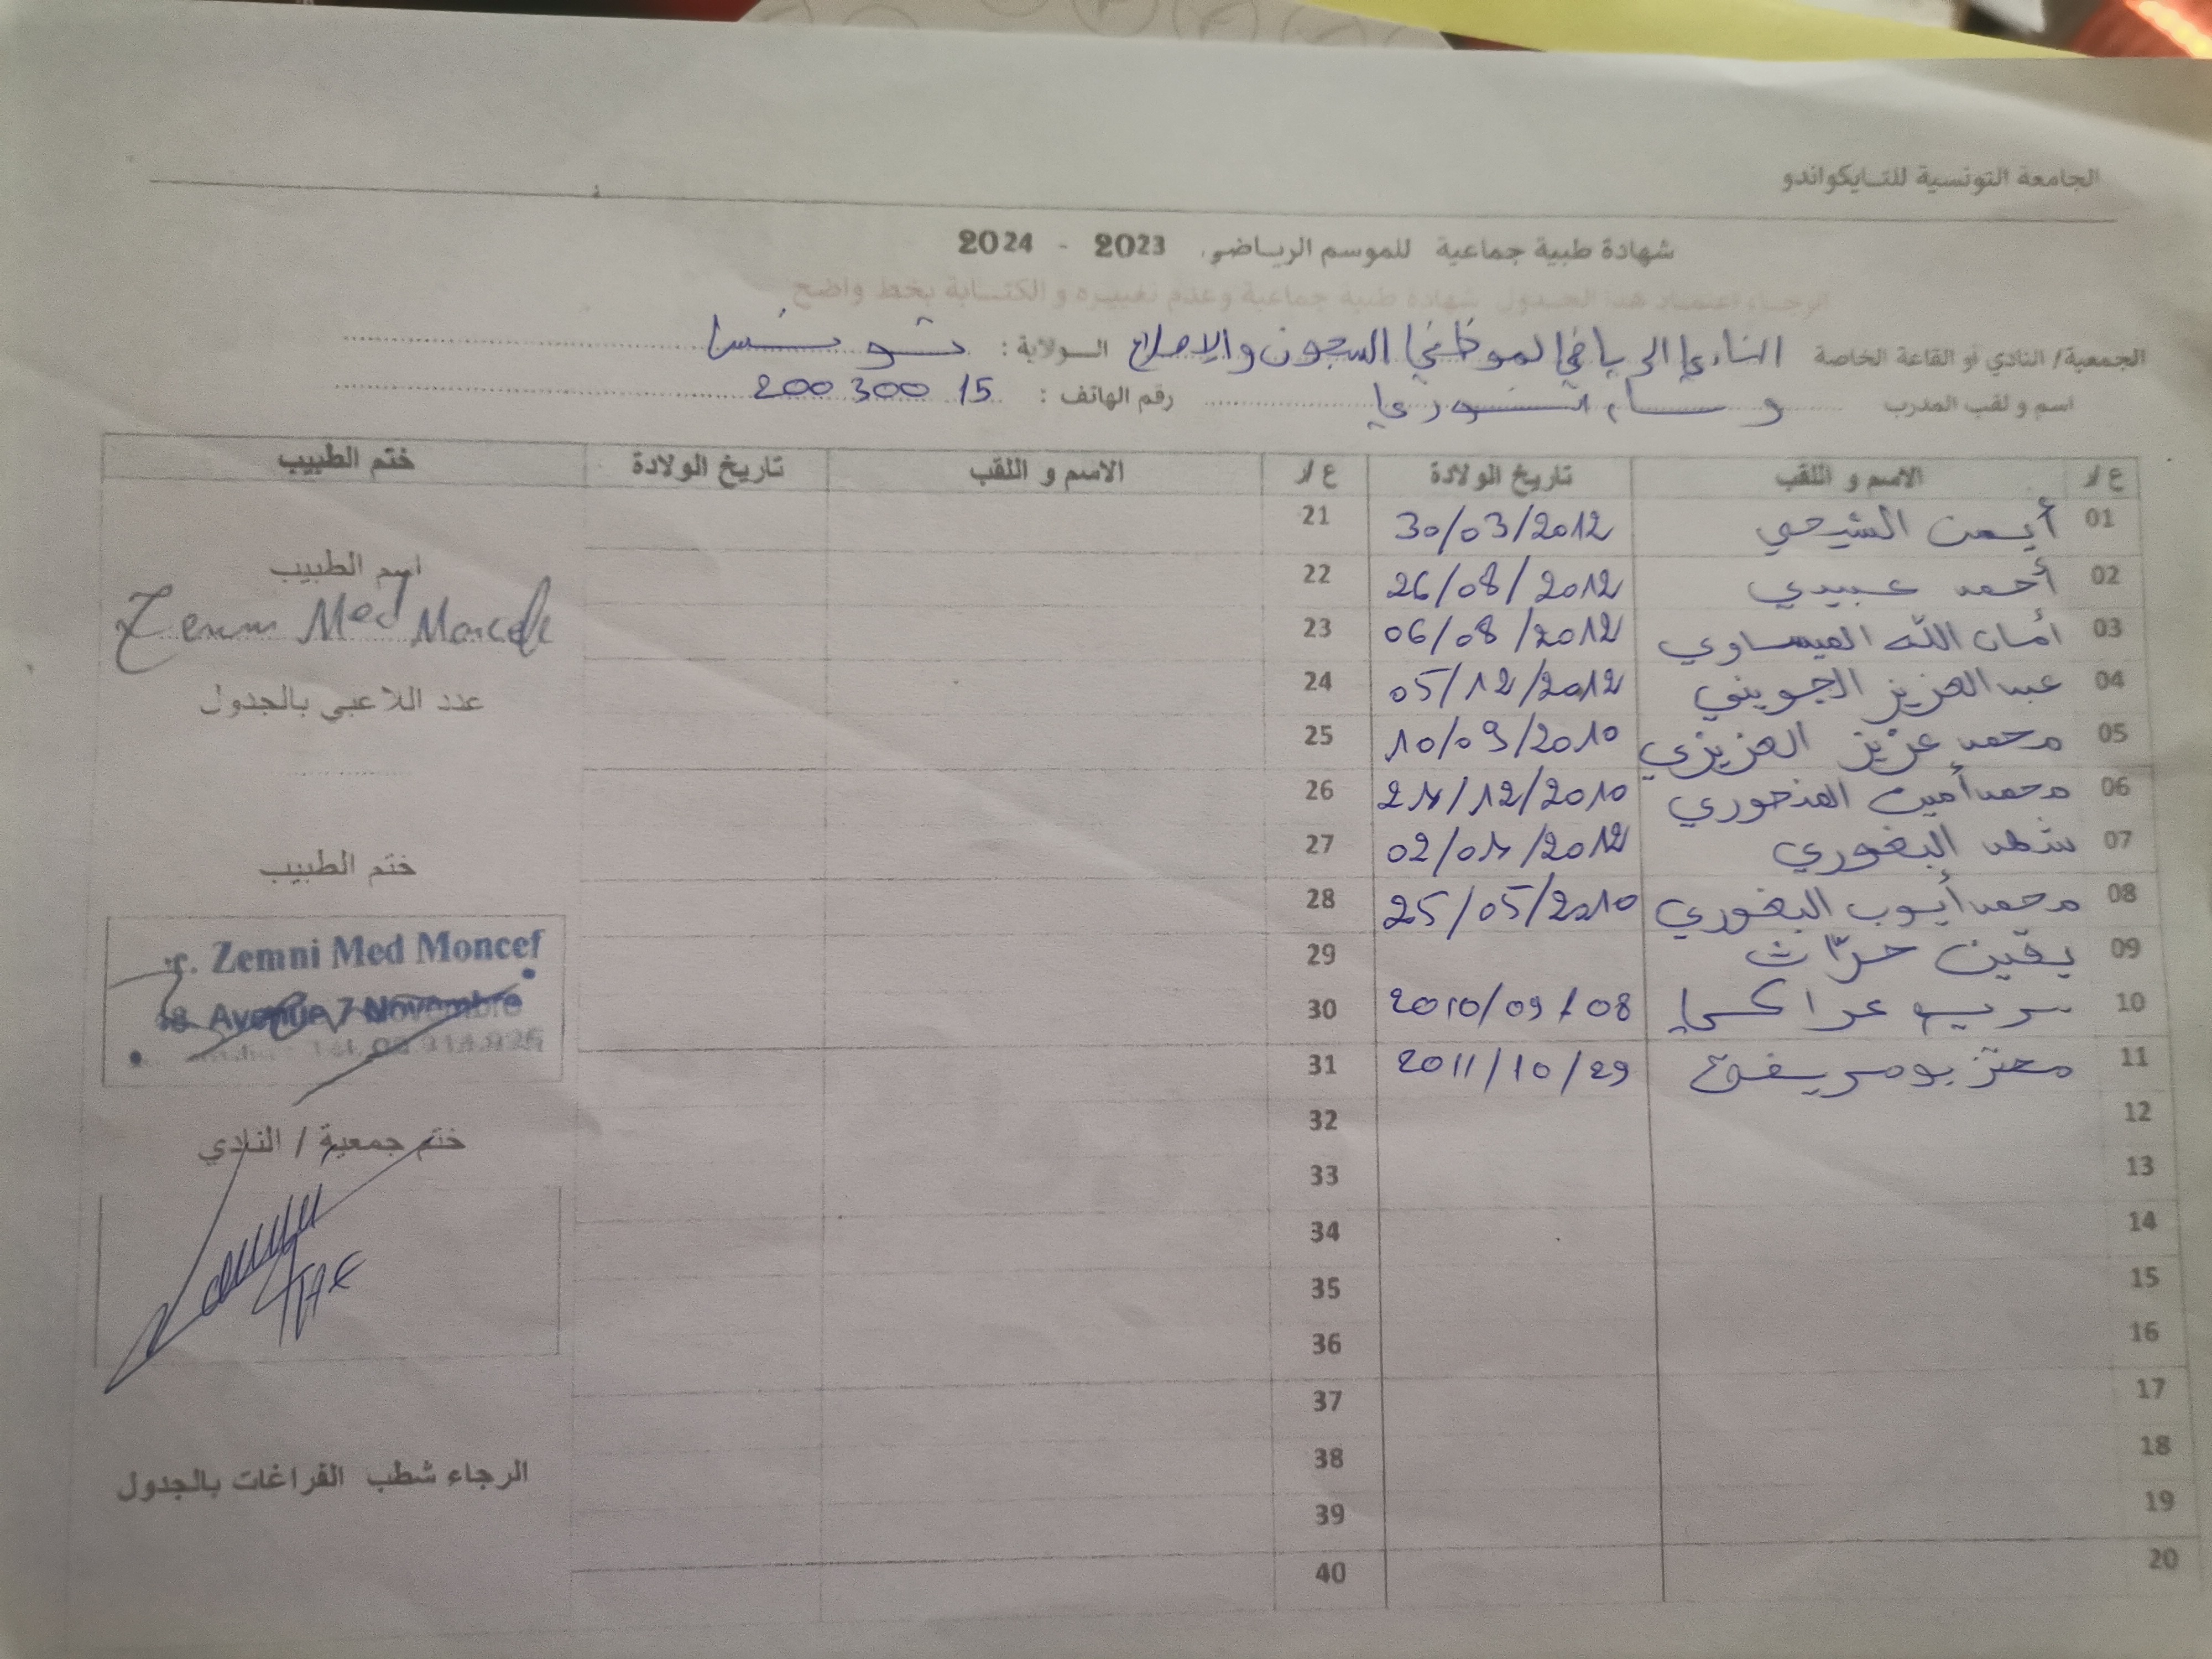 الجامعة التونسية للتايكواندو
شهادة طبية جماعية للموسم الرياضي 2023 - 2024
الرجاء اعتماد هذا الجدول شهادة طبية جماعية وعدم تغييره و الكتابة بخط واضح
الجمعية/ النادي أو القاعة الخاصة النادي الرياضي لموظفي السجون والإصلاح الولاية : تونس
اسم و لقب المدرب وسام نوري رقم الهاتف : 15 300 200
ع/ر الاسم و اللقب تاريخ الولادة ع/ر الاسم و اللقب تاريخ الولادة ختم الطبيب
01 أيمن الشيحي 30/03/2012 21
02 أحمد عبيدي 26/08/2012 22
03 أمان الله العيساوي 06/08/2012 23
04 عبد العزيز الجويني 05/12/2012 24
05 محمد عزيز العزيزي 10/09/2010 25
06 محمد أمين 12/2010 26
07 شهد اليغوري 2012 27
08 محمد أيوب اليغوري 25/05/2010 28
09 يقين حراث 29
10 2010/09/08 30
11 معتز 2011/10/29 31
12 32
13 33
14 34
15 35
16 36
17 37
18 38
19 39
20 40
اسم الطبيب
Zemni Med Moncef
عدد اللاعبي بالجدول
ختم الطبيب
r. Zemni Med Moncef
Avenue 7 Novembre
ختم جمعية / النادي
الرجاء شطب الفراغات بالجدول